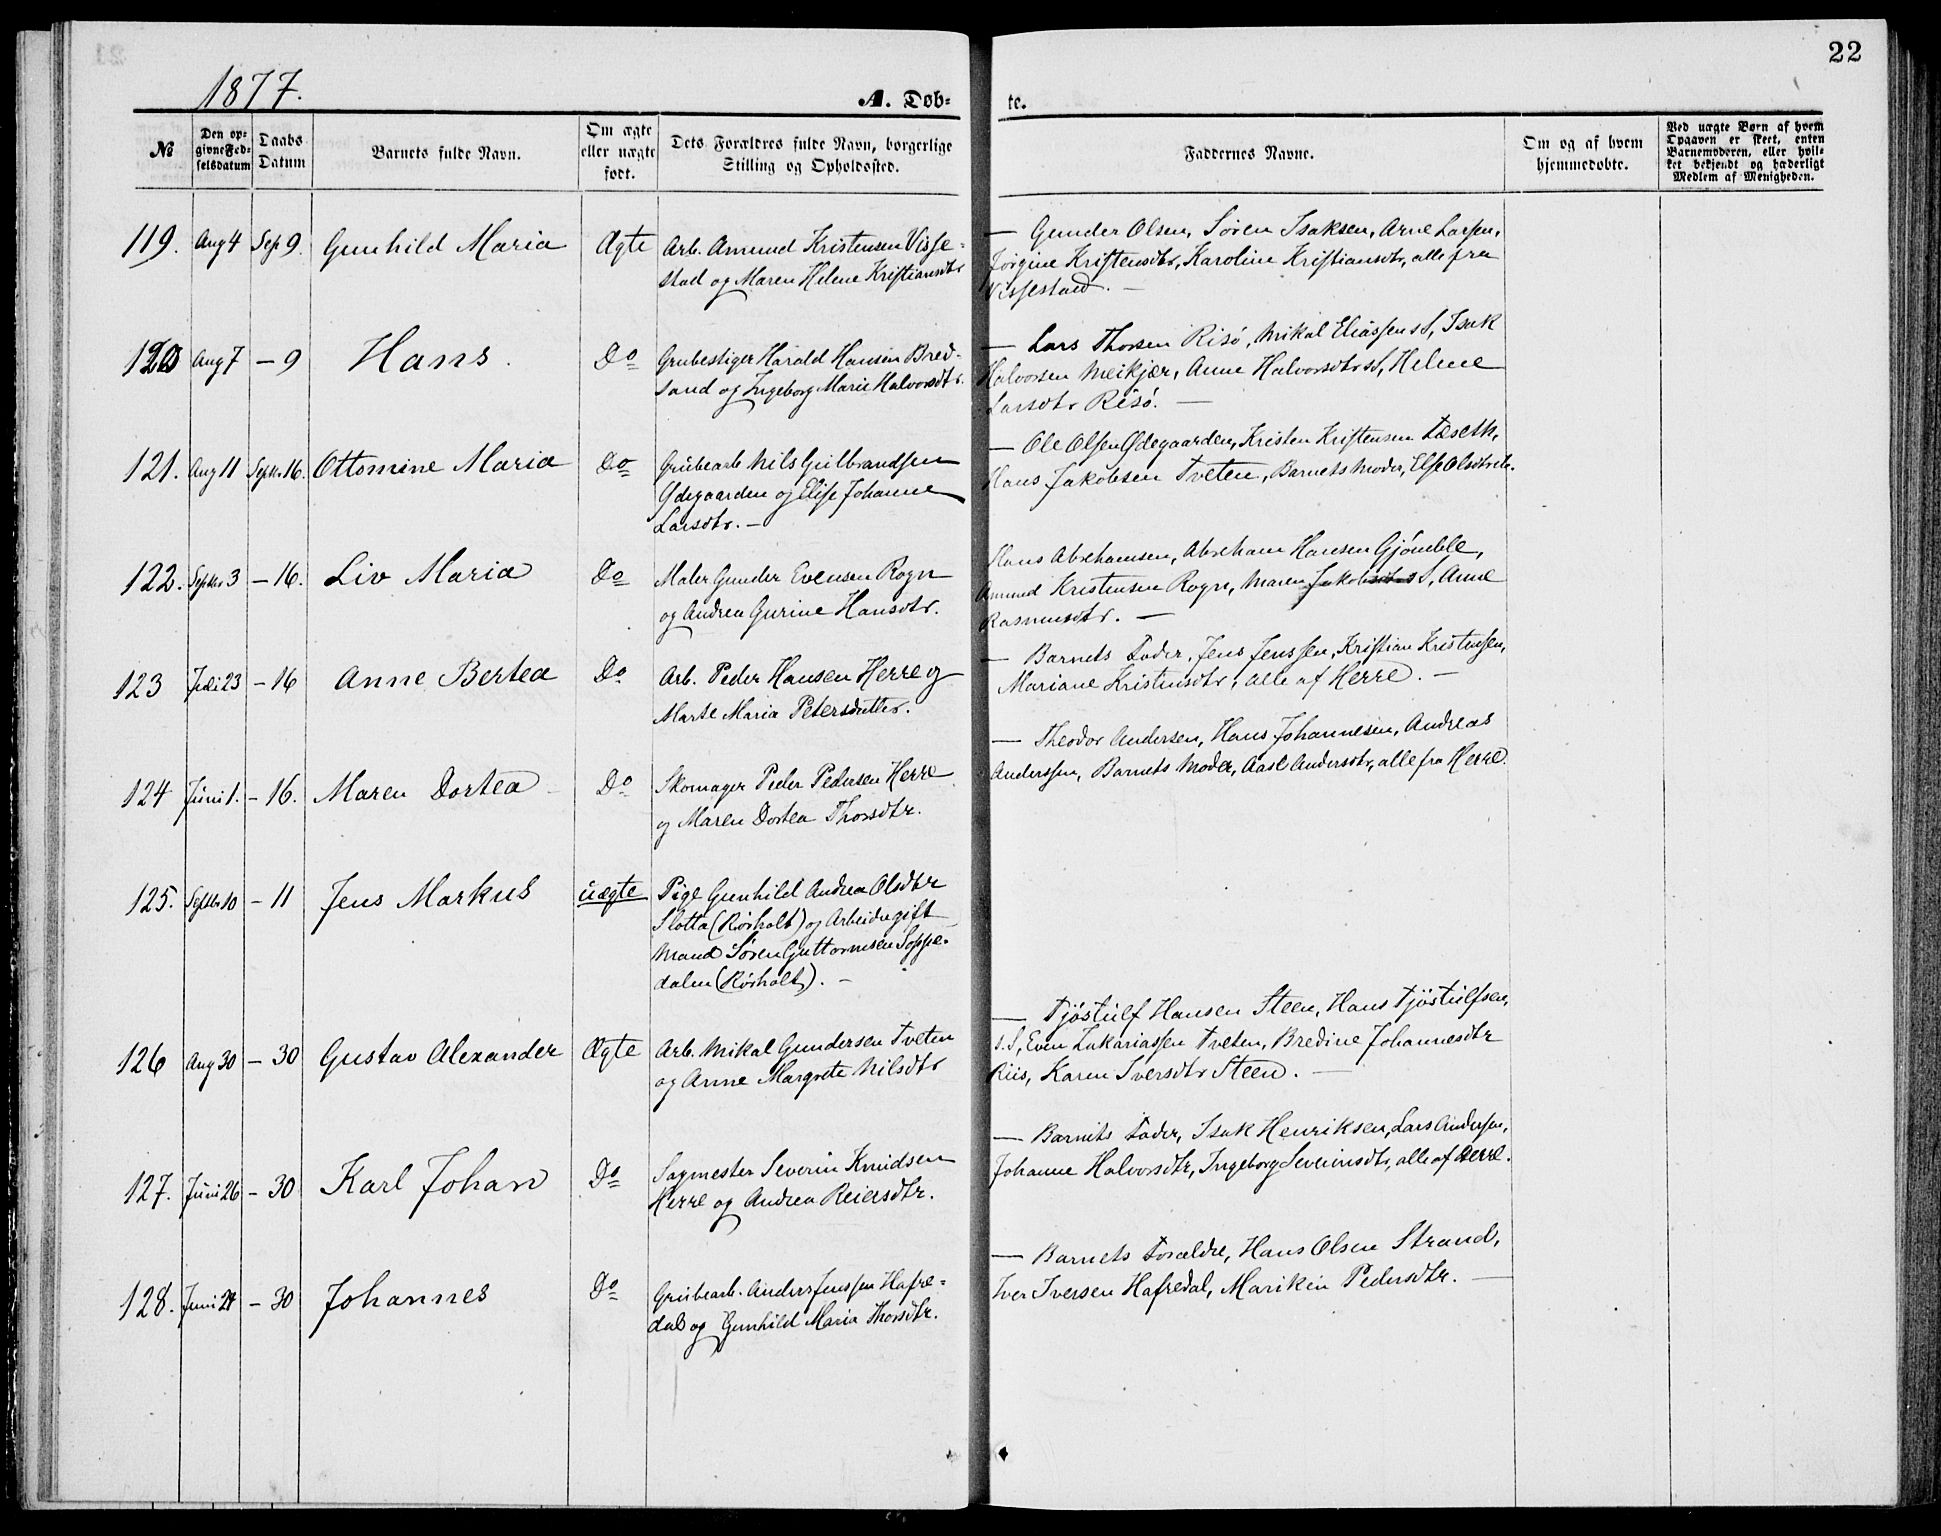 22
1877.
A. Døb-
te.
№
Den op-
givne Fød-
selsdatum
Daabs
Datum
Barnets fulde Navn.
Om ægte
eller uægte
født.
Dets Forældres fulde Navn, borgerlige
Stilling og Opholdssted.
Faddernes Navne.
Om og af hvem
hjemmedøbte.
Ved uægte Børn af hvem
Opgaven er skeet, enten
Barnemoderen, eller hvil-
ket bekjendt og hæderligt
Medlem af Menigheden.
119. Aug 4 Sep 9. Gunhild Maria Ægte Arb. Amund Kristensen Visse-
stad og Maren Helene Kristiansdtr
— Gunder Olsen, Søren Isaksen, Arne Larsen,
Jørgine Kristensdtr, Karoline Kristiansdtr, alle fra
Vissestad. —
120 Aug 7 — 9 Hans. Do Grubestiger Harald Hansen Bred-
sand og Ingeborg Marie Halvorsdtr.
— Lars Thorsen Risø, Mikal Eliassen s S, Isak
Halvorsen Meikjær, Anne Halvorsdtr s S, Helene
Larsdtr Risø. —
121. Aug 11 Septbr 16. Ottomine Maria Do Grubearb Nils Gulbrandsen
Ødegaarden og Elise Johanne
Larsdtr. —
— Ole Olsen Ødegaarden, Kristen Kristensen Læseth,
Hans Jakobsen Tveten, Barnets Moder, Else Olsdtr
122. Septbr 3 — 16. Liv Maria Do Maler Gunder Evensen Rogn
og Andrea Gurine Hansdtr.
Hans Abrahamsen, Abraham Hansen Gjømle,
Amund Kristensen Rogn, Maren Jakobsdtr s S, Anne
Rasmusdtr. —
123 Juli 23 — 16 Anne Bertea Do Arb. Peder Hansen Herre og
Marte Maria Petersdatter.
— Barnets Fader, Jens Jenssen, Kristian Kristensen,
Mariane Kristensdtr, alle af Herre. —
124 Juni 1. — 16. Maren Dortea Do Skomager Peder Pedersen Herre
og Maren Dortea Thorsdtr.
— Theodor Andersen, Hans Johannesen, Andreas
Anderssen, Barnets Moder, Aase Andersdtr, alle fra Herre.
125. Septbr 10 — 11 Jens Markus uægte Pige Gunhild Andrea Olsdtr
Slotta (Rørholt) og Arbeider gift
Mand Søren Guttormsen Soppe-
dalen (Rørholt). —
126 Aug 30 — 30 Gustav Alexander Ægte Arb. Mikal Gundersen Tveten
og Anne Margrete Nilsdtr
— Tjøstulf Hansen Steen, Hans Tjøstulfsen,
s. S, Even Zakariassen Tveten, Bredine Johannesdtr
Riis, Karen Iversdtr Steen. —
127. Juni 26 — 30 Karl Johan Do Sagmester Severin Knudsen
Herre og Andrea Reiersdtr.
— Barnets Fader, Isak Henriksen, Lars Andersen,
Johanne Halvorsdtr, Ingeborg Severinsdtr, alle af Herre.
128. Juni 28 — 30 Johannes Do Grubearb. Anders Jenssen Hafre-
dal og Gunhild Maria Thorsdtr.
— Barnets Forældre, Hans Olsen Strand,
Iver Iversen Hafredal, Mariken Pedersdtr. —